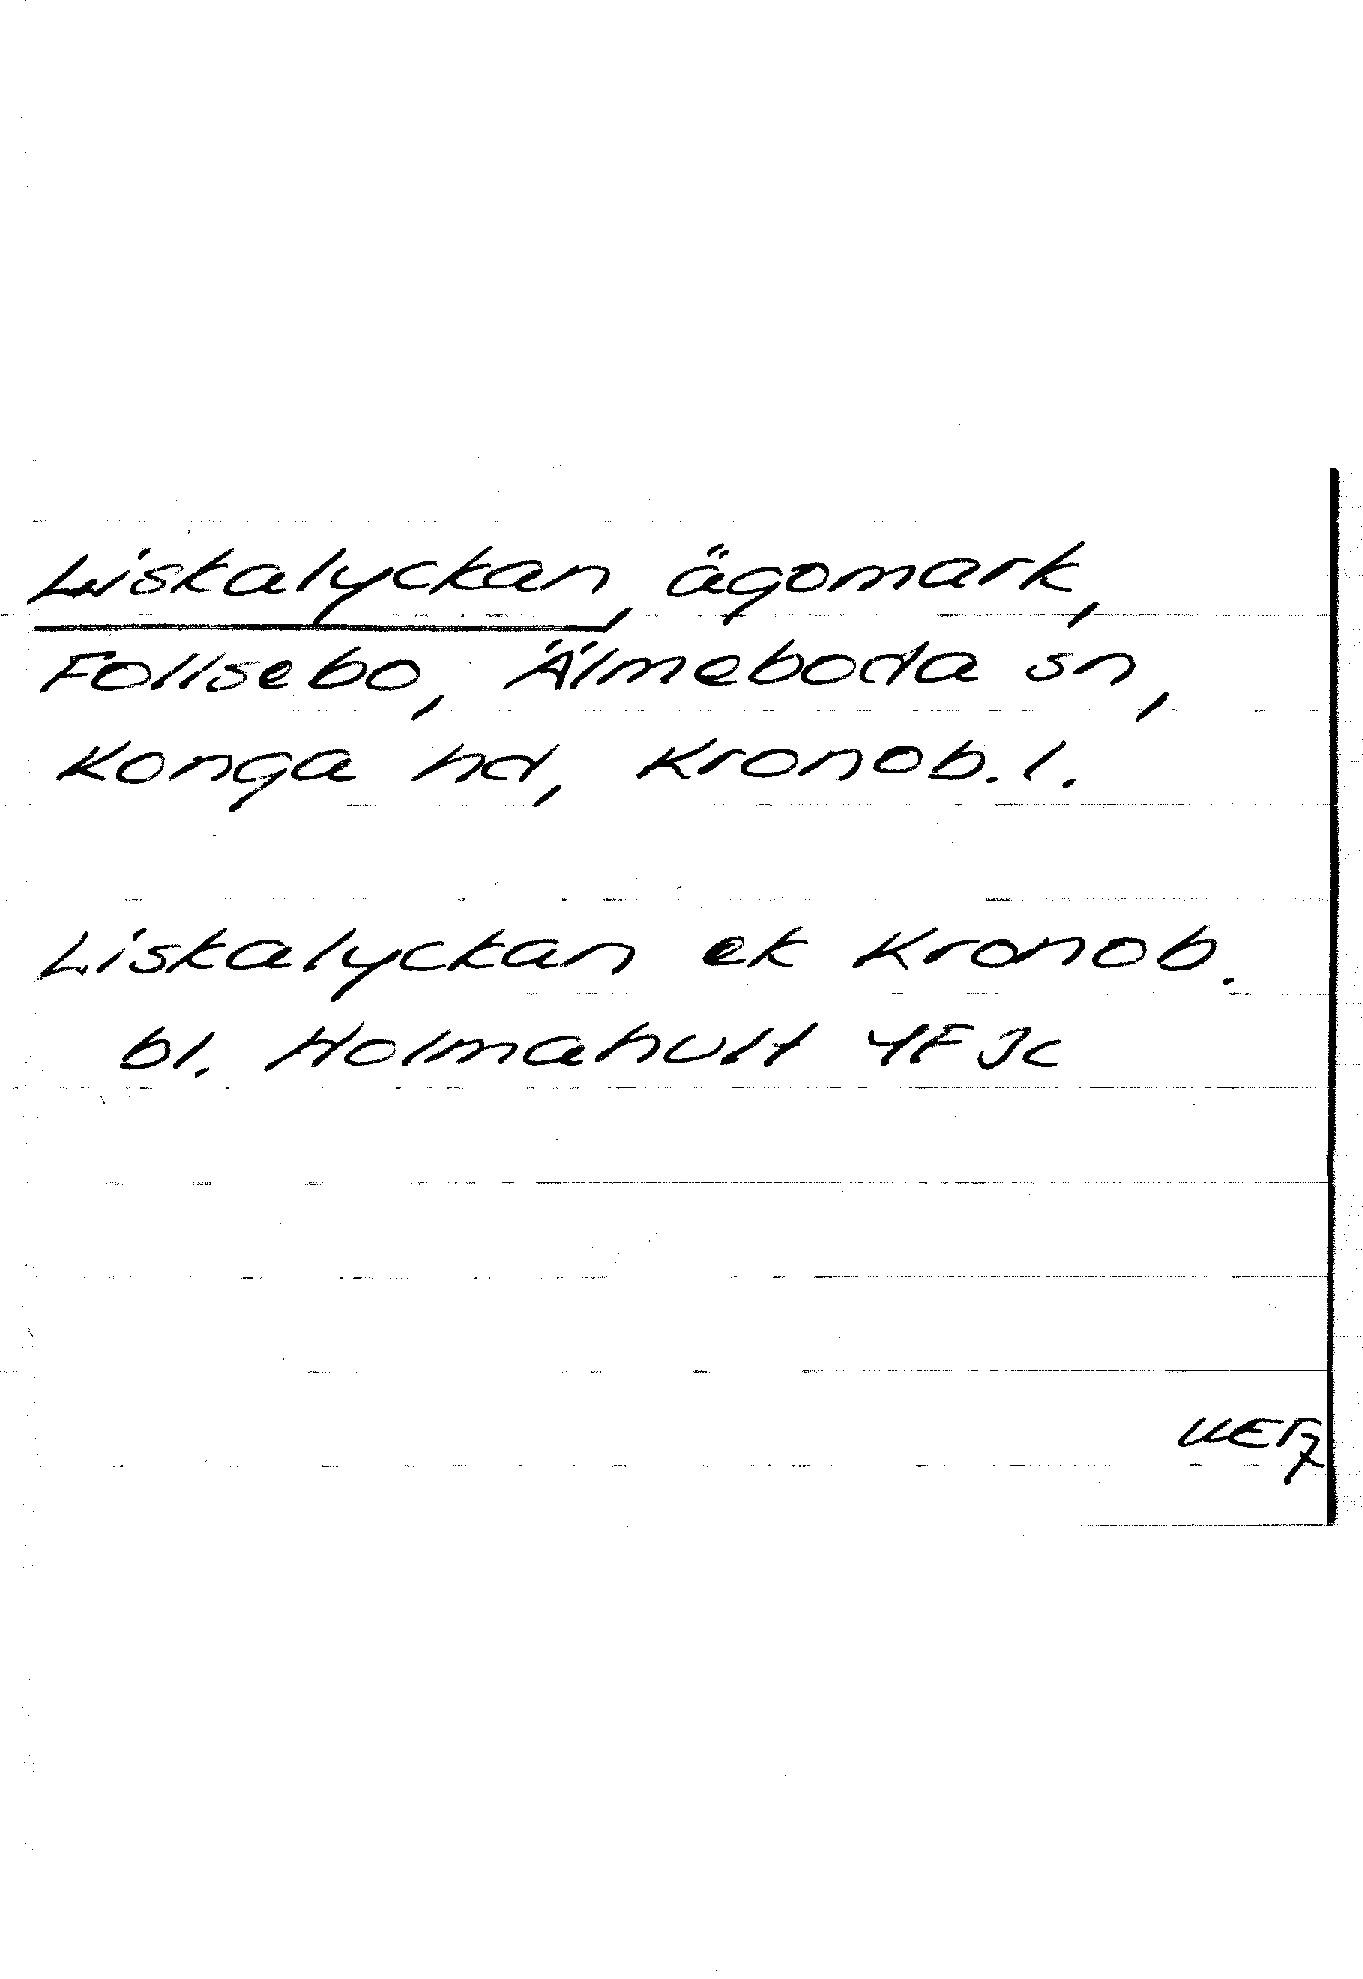 Liskalyckan, ägomark,
Follsebo, Älmeboda sn,
Konga hd, Kronob. l.
Liskalyckan ek Kronob.
bl. Holmahult 4F Jc